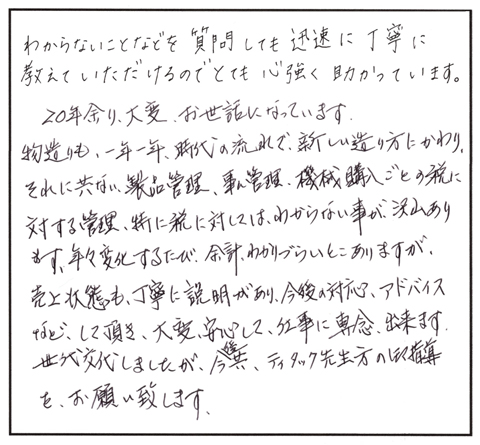 わからないことなどを 質問しても迅速に丁寧に
教えていただけるのでとても心強く助かっています。
20年余り、大変、お世話になっています.
物造りも、一年一年、時代の流れで、新しい造り方にかわり、
それに共ない、製品管理、事ム管理、機械購入ごとの税に
対する管理、特に税に対しては、わからない事が、沢山あり
ます、年々変化するたび、余計、わかりづらいとこありますが、
売上状態も、丁寧に説明があり、今後の対応、アドバイス
など、して頂き、大変、安心して、仕事に専念、出来ます.
世代交代しましたが、今後共、ティタック先生方の御指導
を、お願い致します.